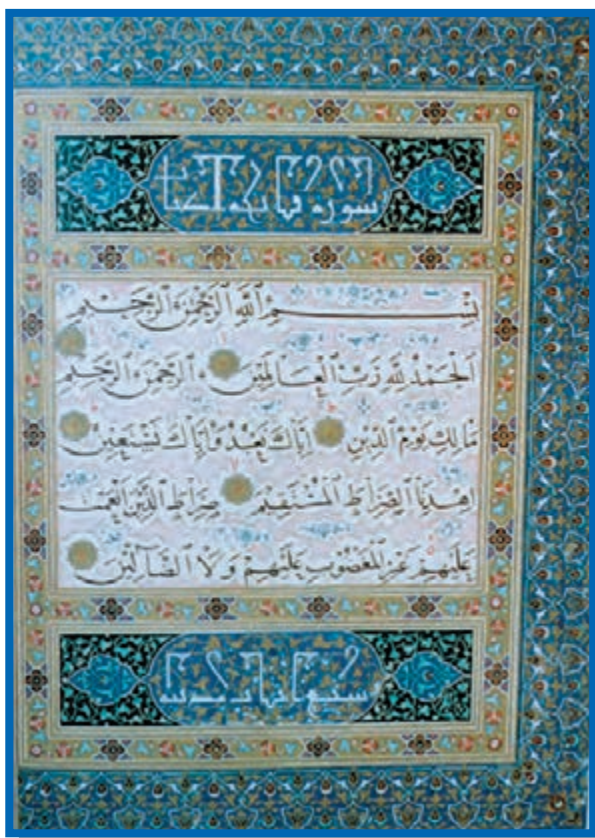 سورة فاتحة الكتاب
بِسْمِ اللَّهِ الرَّحْمَنِ الرَّحِيمِ
اَلْحَمْدُ لِلَّهِ رَبِّ الْعَالَمِينَ الرَّحْمَنِ الرَّحِيمِ
مَالِكِ يَوْمِ الدِّينِ اِيَّاكَ نَعْبُدُ وَاِيَّاكَ نَسْتَعِينُ
اِهْدِنَا الصِّرَاطَ الْمُسْتَقِيمَ صِرَاطَ الَّذِينَ اَنْعَمْتَ
عَلَيْهِمْ غَيْرِ الْمَغْضُوبِ عَلَيْهِمْ وَلَا الضَّالِّينَ
سبع ايات مدنية